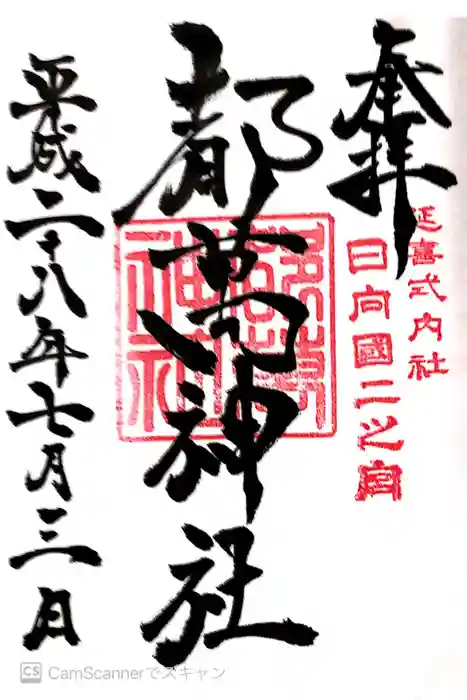 奉拝
延喜式内社
日向國二之宮
都萬神社
平成二十八年七月三日
CamScannerでスキャン